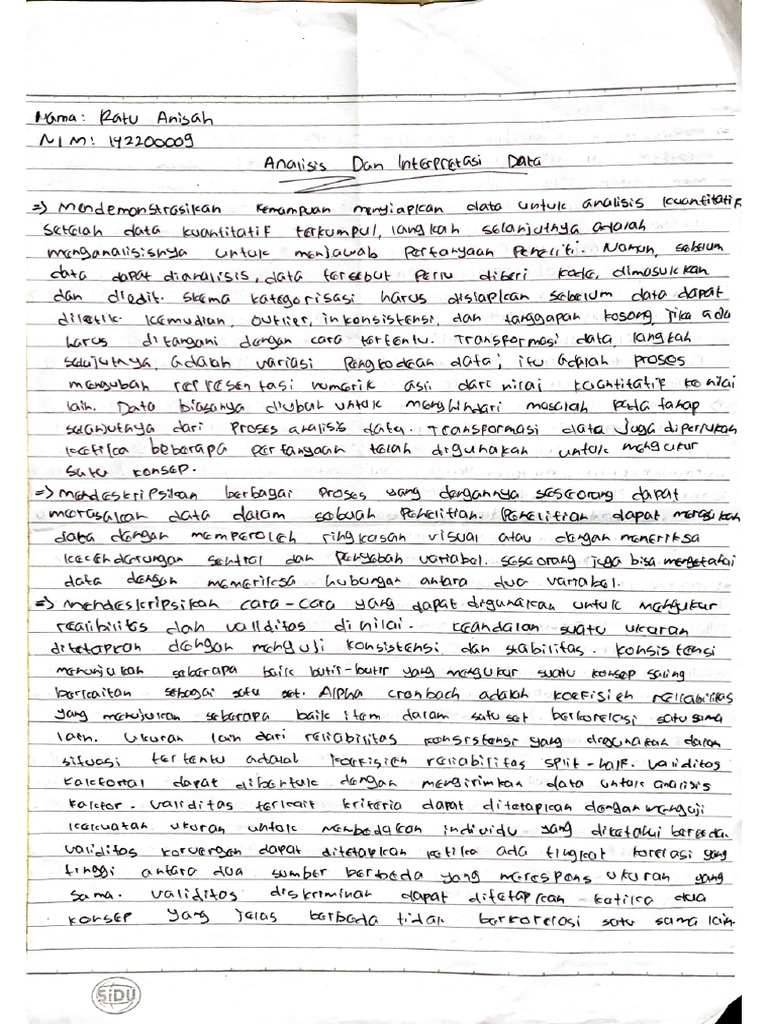 Nama: Ratu Anisah
NIM: 142200009
Analisis Dan Interpretasi Data
=> Mendemonstrasikan kemampuan menyiapkan data untuk analisis kuantitatif
Setelah data kuantitatif terkumpul, langkah selanjutnya adalah
menganalisisnya untuk menjawab pertanyaan peneliti. Namun, sebelum
data dapat dianalisis, data tersebut perlu diberi kode, dimasukkan
dan diedit. skema kategorisasi harus disiapkan sebelum data dapat
diketik. kemudian, outlier, inkonsistensi, dan tanggapan kosong, jika ada
harus ditangani dengan cara tertentu. Transformasi data, langkah
selajutnya, adalah variasi pengkodean data; itu adalah proses
mengubah representasi numerik asli dari nilai kuantitatif ke nilai
lain. Data biasanya diubah untuk menghindari masalah pada tahap
selanjutnya dari proses analisis data. Transformasi data juga diperlukan
ketika beberapa pertanyaan telah digunakan untuk mengukur
satu konsep.
=> mendeskripsikan berbagai proses yang dengannya seseorang dapat
merasakan data dalam sebuah penelitian. Penelitian dapat merasakan
data dengan memperoleh ringkasan visual atau dengan memeriksa
kecenderungan sentral dan penyebab variabel. seseorang juga bisa mengetahui
data dengan memeriksa hubungan antara dua variabel.
=> mendeskripsikan cara-cara yang dapat digunakan untuk mengukur
realibilitas dan validitas dinilai. keandalan suatu ukuran
ditetapkan dengan menguji konsistensi dan stabilitas. konsistensi
menunjukan seberapa baik butir-butir yang mengukur suatu konsep saling
berkaitan sebagai satu set. Alpha cronbach adalah koefisien reliabilitas
yang menunjukan seberapa baik item dalam satu set berkorelasi satu sama
lain. Ukuran lain dari reliabilitas konsistensi yang digunakan dalam
situasi tertentu adalah koefisien reliabilitas split-half. validitas
faktorial dapat dibentuk dengan mengirimkan data untuk analisis
faktor. validitas terkait kriteria dapat ditetapkan dengan menguji
kekuatan ukuran untuk membedakan individu yang diketahui berbeda.
validitas konvergen dapat ditetapkan ketika ada tingkat korelasi yang
tinggi antara dua sumber berbeda yang merespons ukuran yang
sama. validitas diskriminan dapat ditetapkan ketika dua
konsep yang jelas berbeda tidak berkorelasi satu sama lain.
SiDU